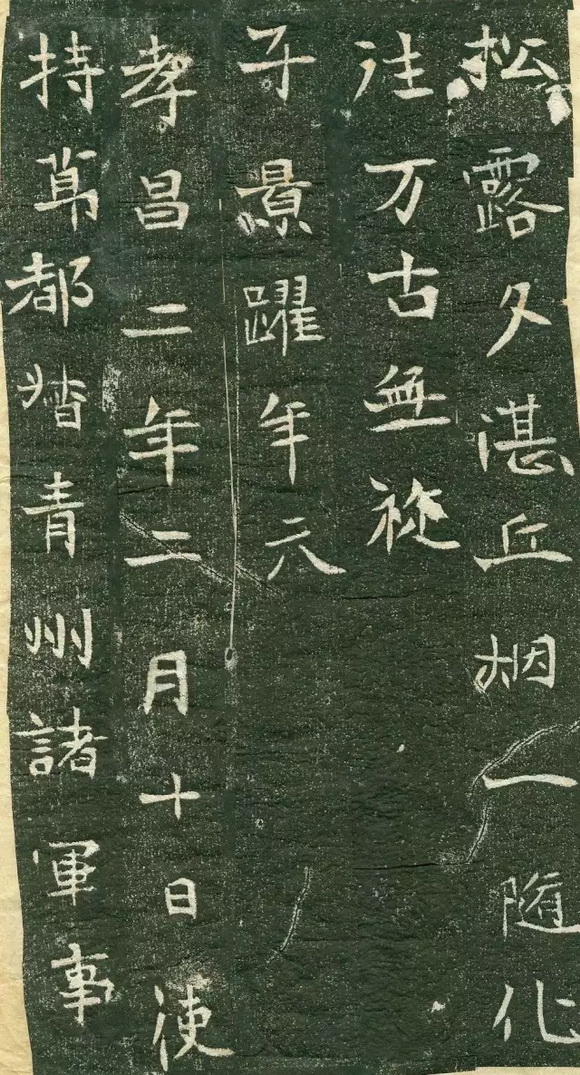 松露夕湛丘栶一隨化
往万古無從
子景躍年六
孝昌二年二月十日使
持節都督青州諸軍事